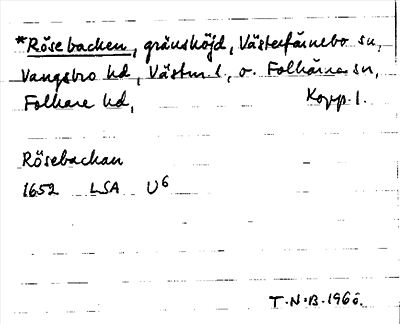 *Rösebacken, gränshöjd, Västerfärnebo sn,
Vangsbro hd, Västm. l., o. Folkärna sn,
Folkare hd, Kopp. l.
Rösebackan
1652 LSA U6
T.N.B. 1960.